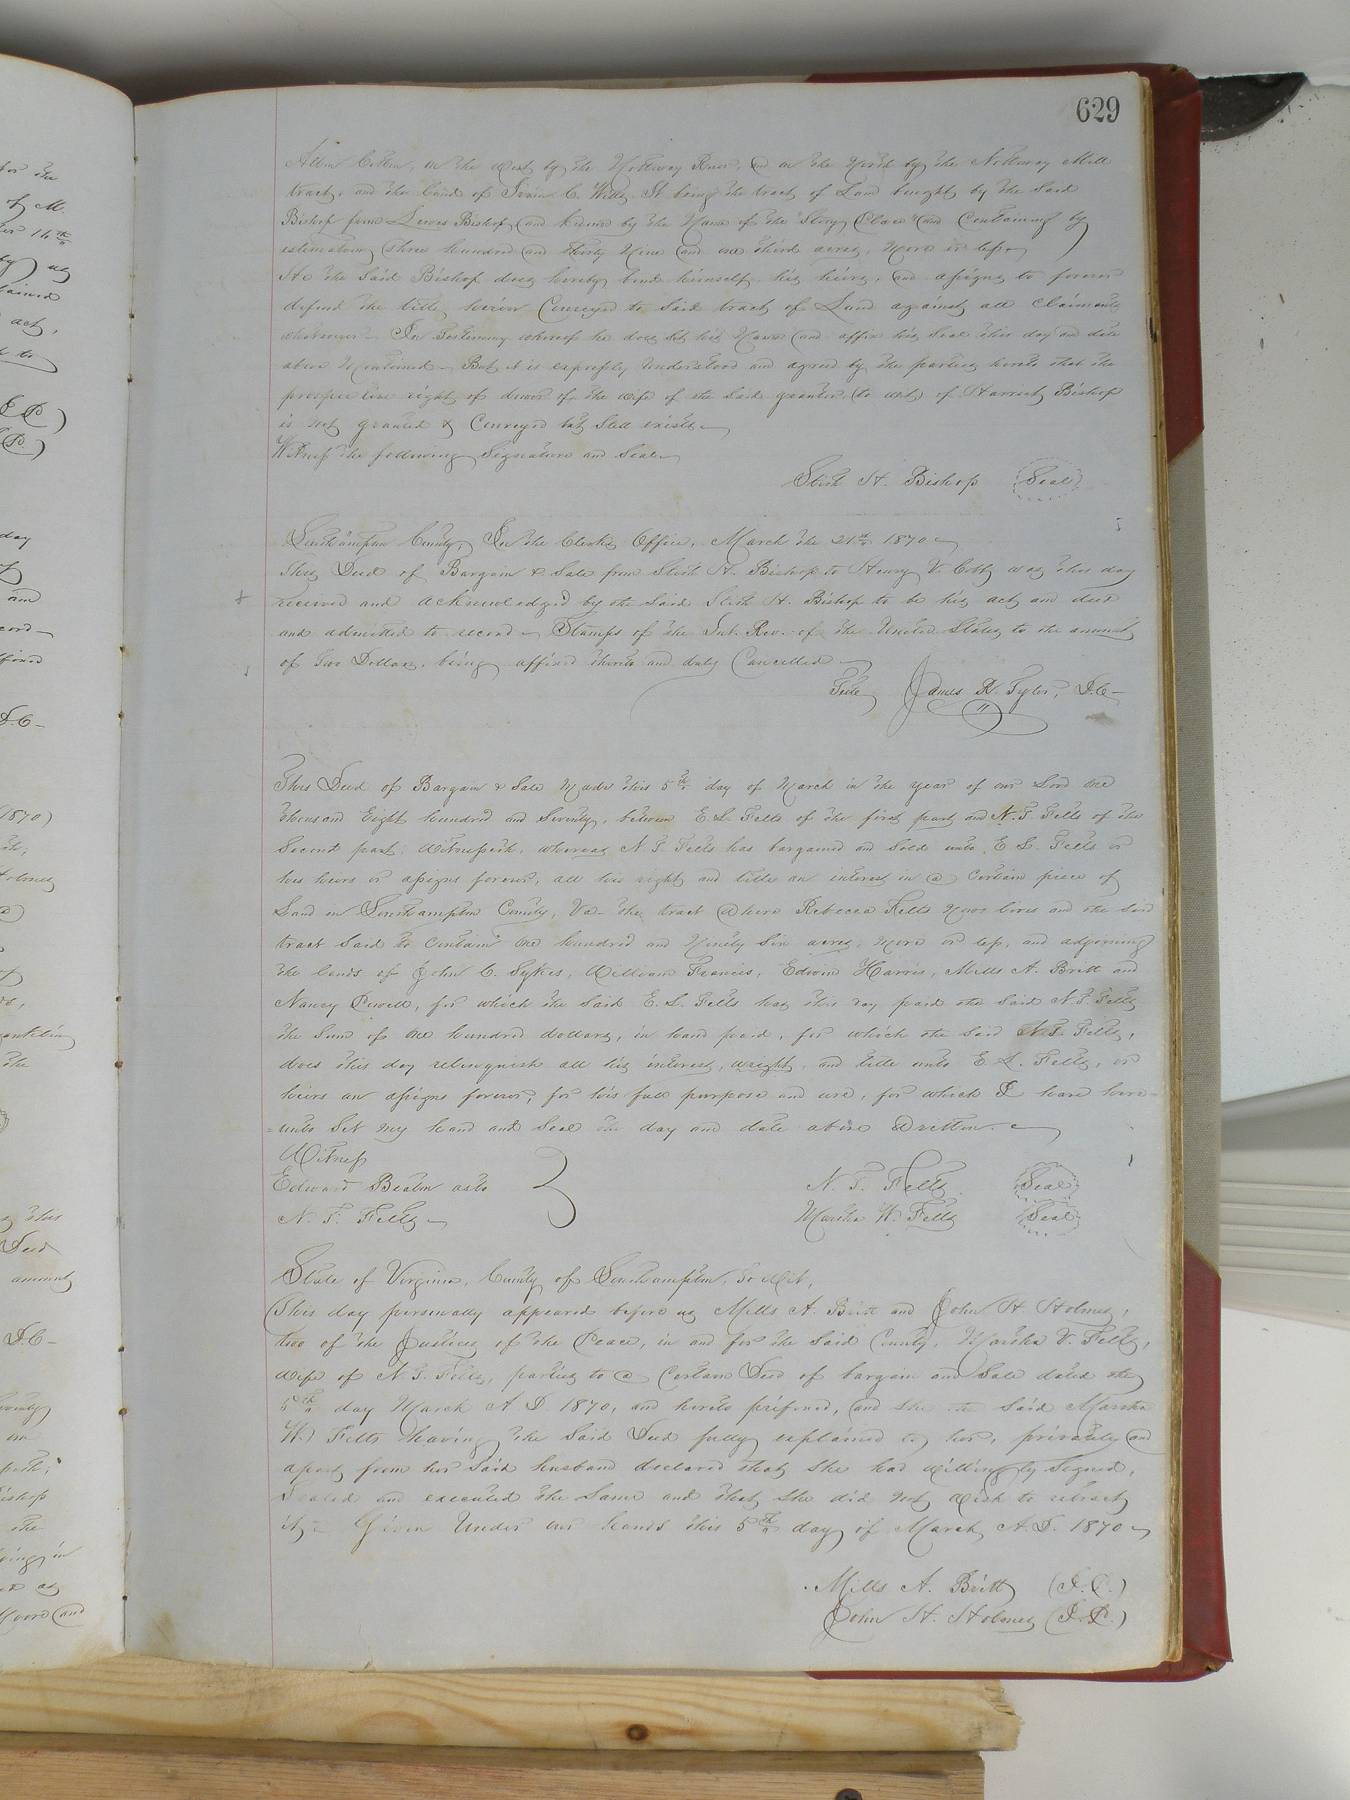 629
in the West by the Nottoway River, and on the North by the Nottoway Mill
tract, and the land of C. Wills. It being the tract of Land bought by the said
Bishop from Lewis Bishop, and known by the Name of the "Story Place" and Containing by
estimation three hundred and thirty Nine and one third acres, More or less.
He the said Bishop does hereby bind himself, his heirs, and assigns to forever
defend the title herein Conveyed to Said tract of Land against all Claimants
whatsoever. In Testimony whereof he does set his Name and affix his Seal this day and date
above Mentioned. But it is expressly Understood and agreed by the parties hereto that the
prospective right of dower of the wife of the said grantor (to wit) of Harriet Bishop
is not granted & Conveyed but still exists
Witness the following Signature and Seal
H. Bishop Seal
Southampton County, In the Clerks Office, March the 21st 1870
This Deed of Bargain & Sale from H. Bishop to Henry V. Cobb was this day
received and acknowledged by the said H. Bishop to be his act and deed
and admitted to record. Stamps of the Int. Rev. of the United States to the amount
of Two Dollars, being affixed thereto and duly Cancelled
Teste James R. Tyler, D.C.
This Deed of Bargain & Sale Made this 5th day of March in the year of our Lord One
thousand Eight hundred and Seventy, between E. L. Felts of the first part and N. T. Felts of the
Second part, Witnesseth, whereas N. T. Felts has bargained and Sold unto E. L. Felts or
his heirs or assigns forever, all his right and title an interest in a Certain piece of
Land in Southampton County, Va. the tract Where Rebecca Felts Now lives and the said
tract Said to Contain One hundred and Ninety Six acres, More or less, and adjoining
the lands of John C. Sykes, William Francis, Edwin Harris, Mills A. Britt and
Nancy Powell, for which the Said E. L. Felts has this day paid the Said N. T. Felts
the Sum of One hundred dollars, in hand paid, for which the Said N. T. Felts,
does this day relinquish all his interest, wright, and title unto E. L. Felts, or
heirs an assigns forever, for his full purpose and use, for which I have here=
=unto Set my hand and Seal the day and date above Written.
Witness
Edward
N. T. Felts
N. T. Felts Seal
Martha W. Felts Seal
State of Virginia, County of Southampton, To Wit,
This day personally appeared before us Mills A. Britt and John H. Holmes,
two of the Justices of the Peace, in and for the said County, Martha V. Felts,
Wife of N. T. Felts, parties to a Certain Deed of bargain and Sale dated the
5th day March A. D. 1870, and hereto and She the Said Martha
W. Felts having the Said Deed fully explained to her, privately and
apart from her Said husband declared that She had Willingly Signed,
Sealed and executed the Same and that She did not Wish to retract
it. Given Under our hands this 5th day of March A. D. 1870
Mills A. Britt (J.P.)
John H. Holmes (J.P.)